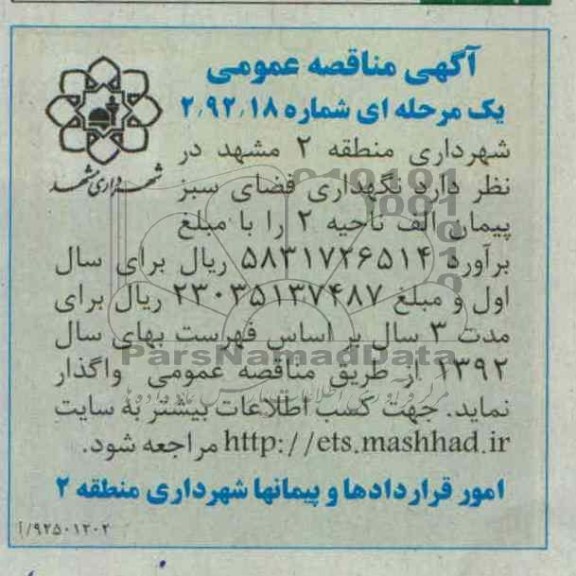 آگهی مناقصه عمومی
یک مرحله ای شماره ۲٫۹۲٫۱۸
شهرداری مشهد
شهرداری منطقه ۲ مشهد در
نظر دارد نگهداری فضای سبز
پیمان الف ناحیه ۲ را با مبلغ
برآورد ۵۸۳۱۷۲۶۵۱۴ ریال برای سال
اول و مبلغ ۲۳۰۳۵۱۳۷۴۸۷ ریال برای
مدت ۳ سال بر اساس فهرست بهای سال
ParsNamadData
۱۳۹۲ از طریق مناقصه عمومی واگذار
نماید. جهت کسب اطلاعات بیشتر به سایت
http://ets.mashhad.ir مراجعه شود.
امور قراردادها و پیمانها شهرداری منطقه ۲
/۹۲۵۰۱۲۰۲آ